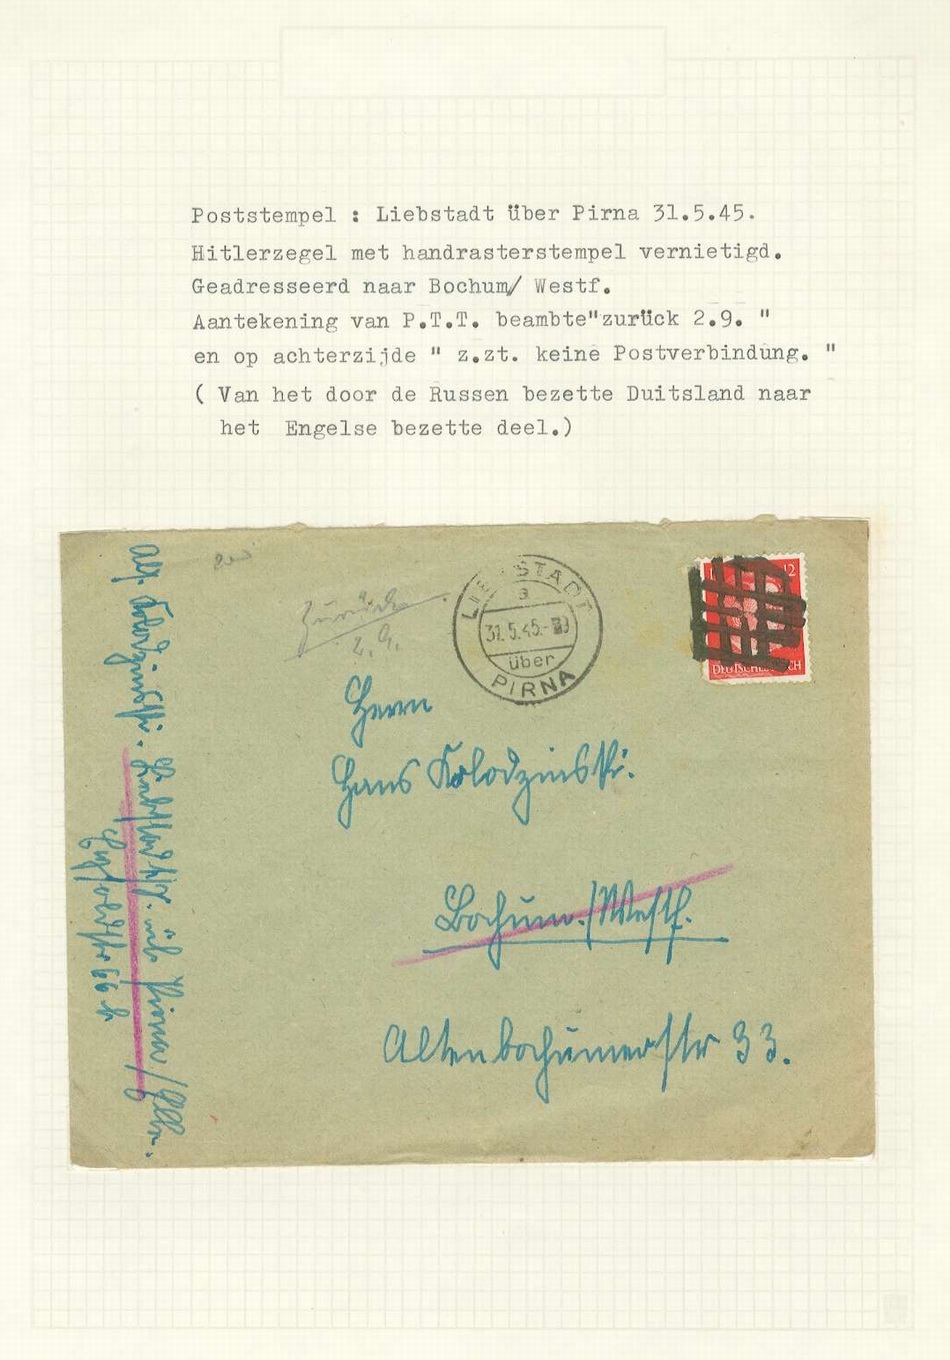 Poststempel : Liebstadt über Pirna 31.5.45.
Hitlerzegel met handrasterstempel vernietigd.
Geadresseerd naar Bochum/ Westf.
Aantekening van P.T.T. beambte"zurück 2.9. "
en op achterzijde " z.zt. keine Postverbindung. "
( Van het door de Russen bezette Duitsland naar
het Engelse bezette deel.)
zurück
2.9.
LIEBSTADT
a
31.5.45.-
über
PIRNA
12
DEUTSCHES REICH
Herrn
Hans Kolodzinski.
Bochum./Westf.
Altenbochumerstr 33.
Kolodzinski. Liebstadt üb. Pirna/Elbe.